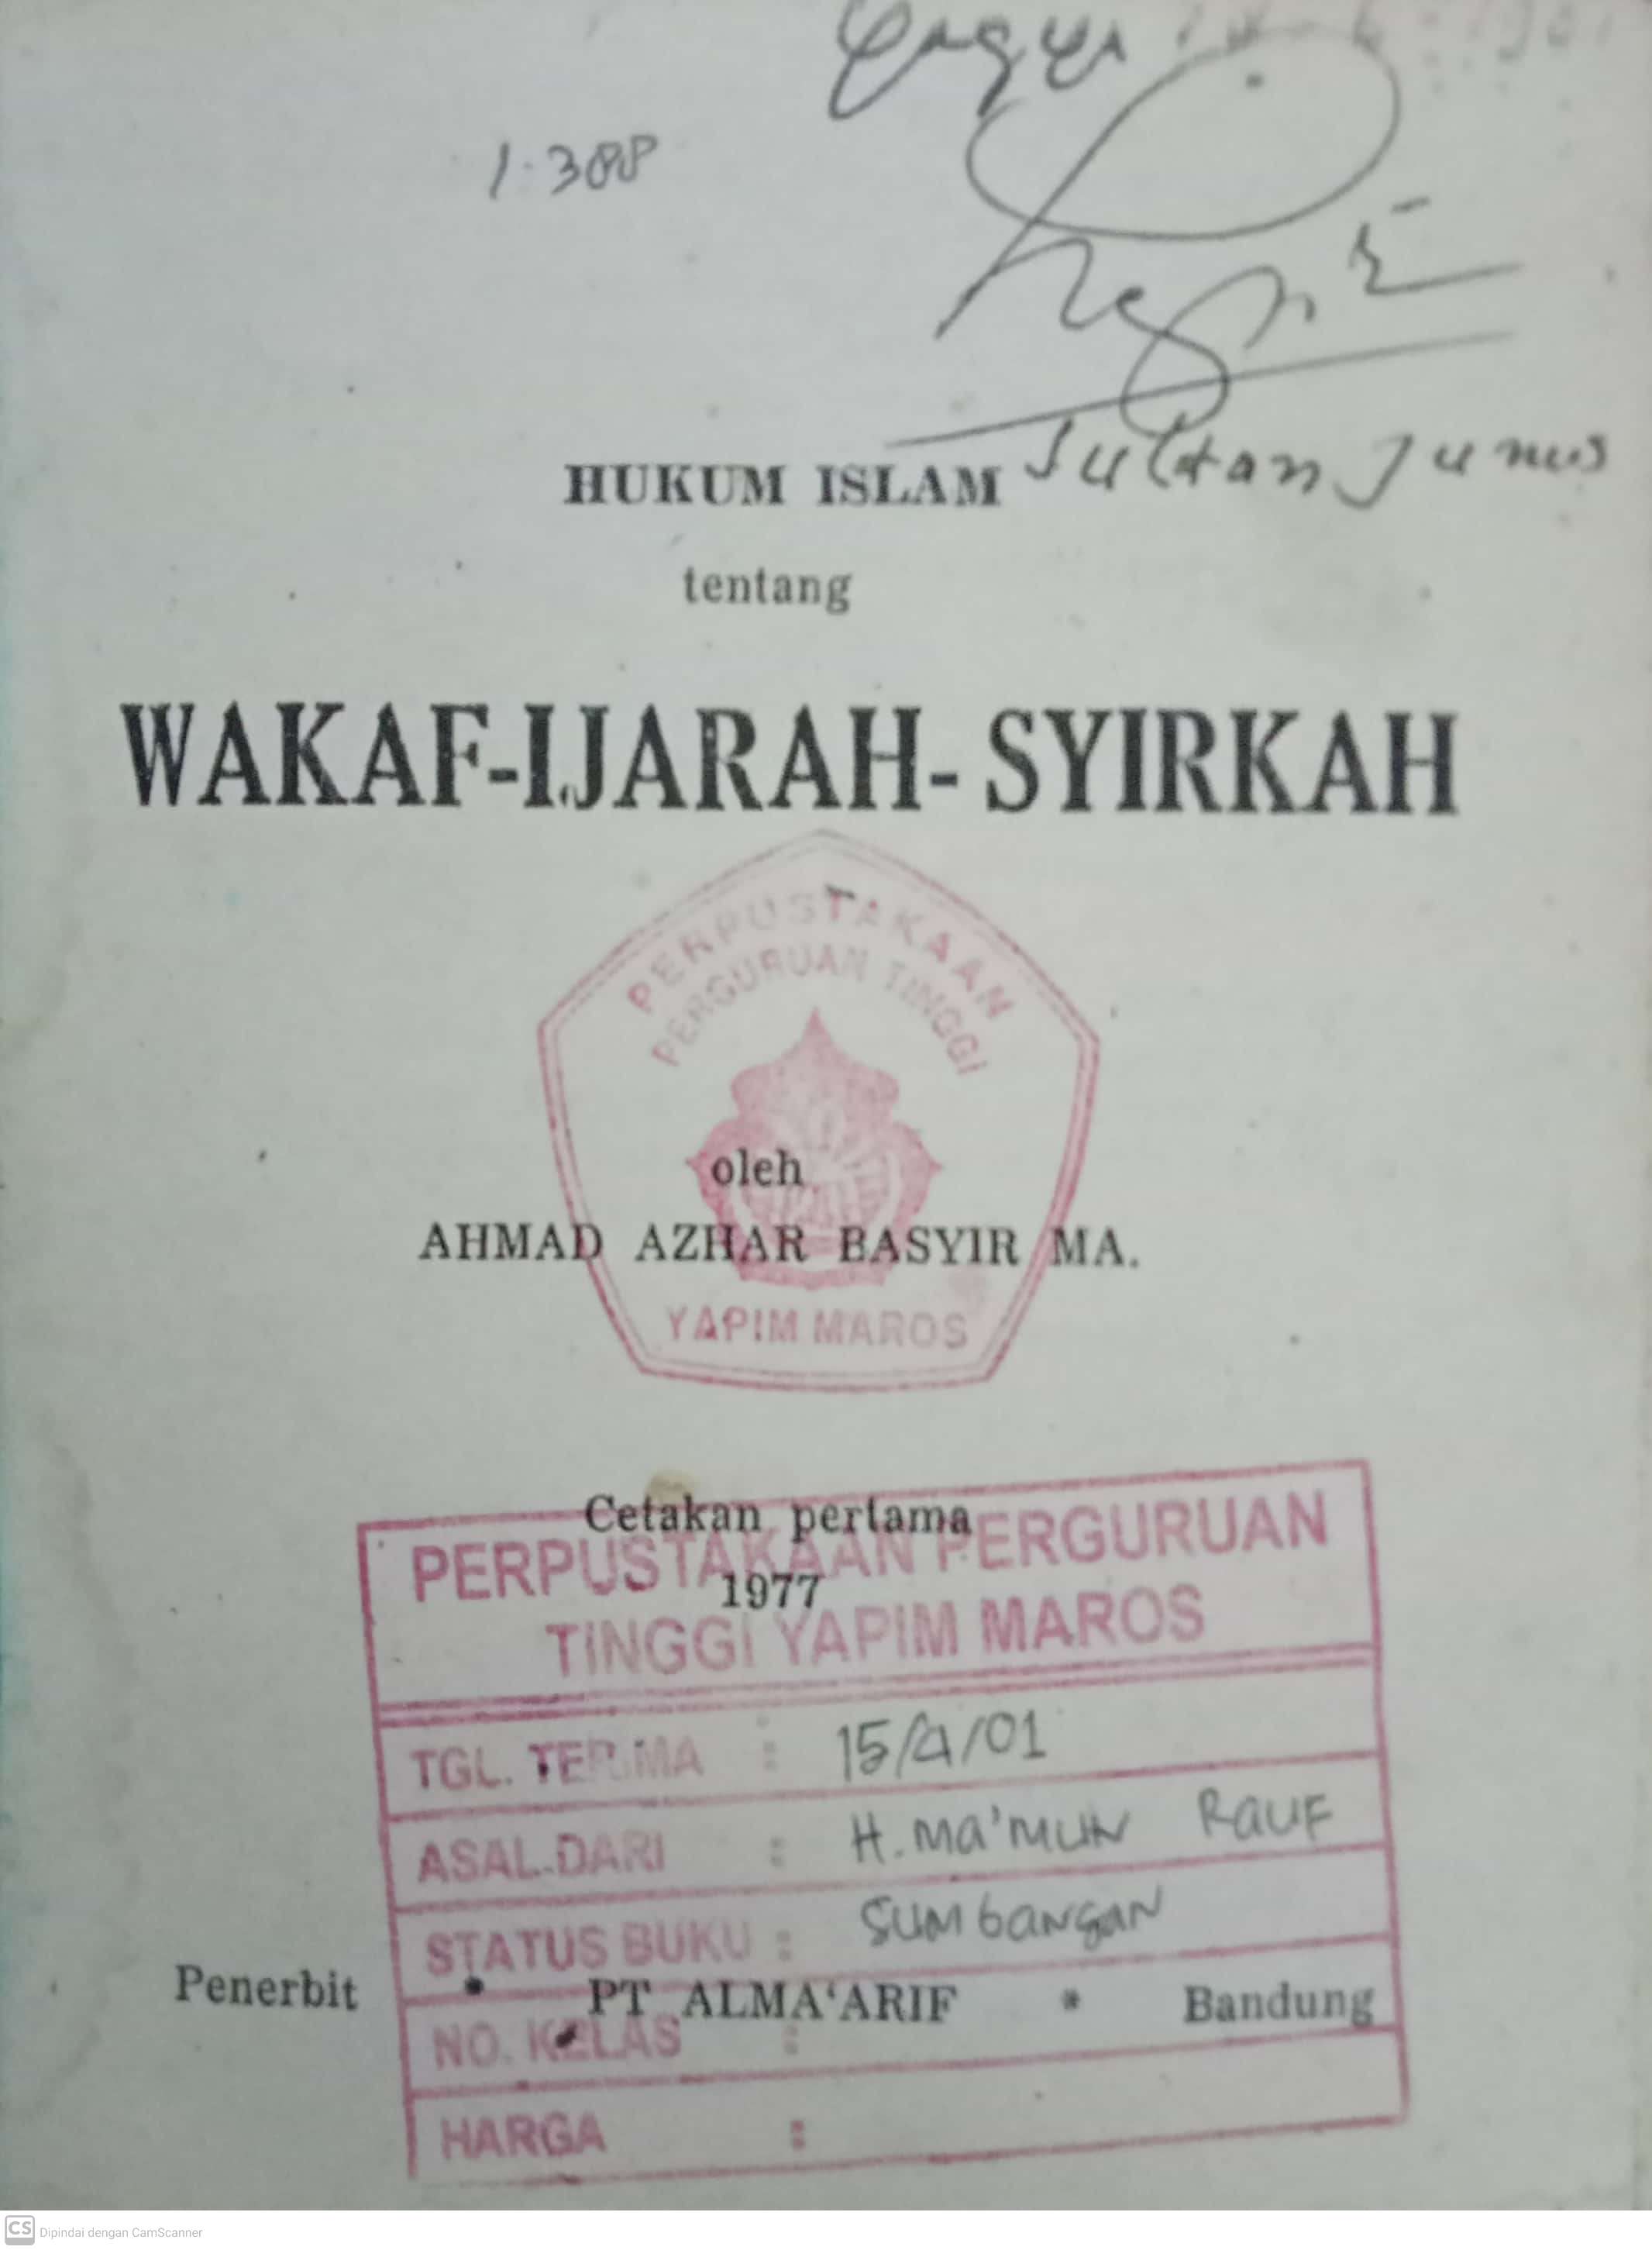 1.388
Sultan Junus
HUKUM ISLAM
tentang
WAKAF-IJARAH-SYIRKAH
PERPUSTAKAAN
PERGURUAN TINGGI
oleh
AHMAD AZHAR BASYIR MA.
YAPIM MAROS
Cetakan pertama
1977
PERPUSTAKAAN PERGURUAN
TINGGI YAPIM MAROS
TGL. TERIMA : 15/4/01
ASAL DARI : H. Ma'mun Rauf
STATUS BUKU : Sumbangan
Penerbit * PT ALMA'ARIF * Bandung
NO. KELAS :
HARGA :
CS Dipindai dengan CamScanner